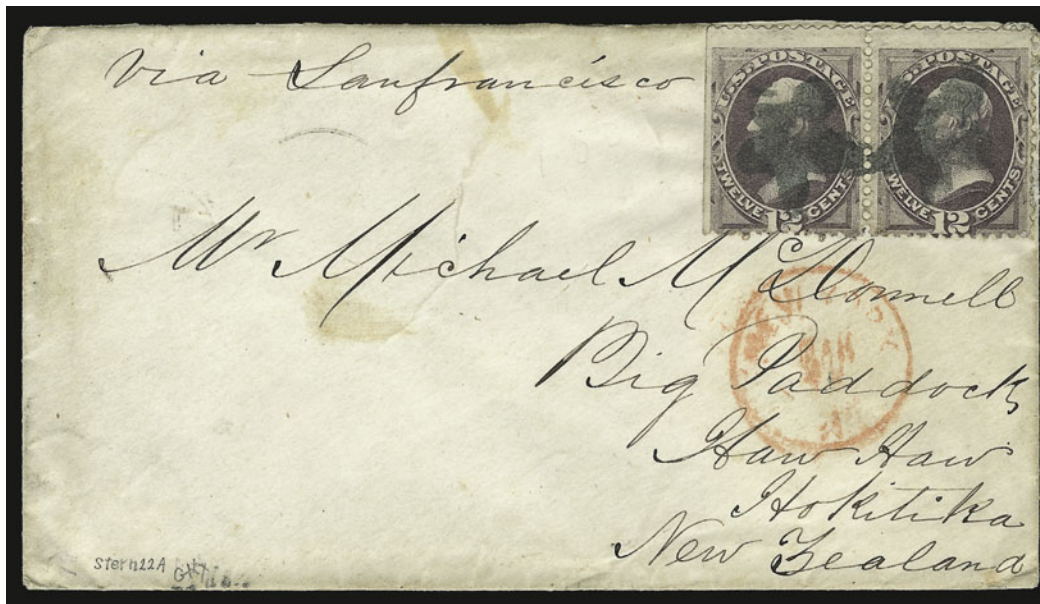 Via Sanfrancisco
U.S. POSTAGE
TWELVE 12 CENTS
U.S. POSTAGE
TWELVE 12 CENTS
Mr Michael McDonnell
NEW YORK
MAR
Big Paddock
Haw Haw
Hokitika
New Zealand
Stern22A